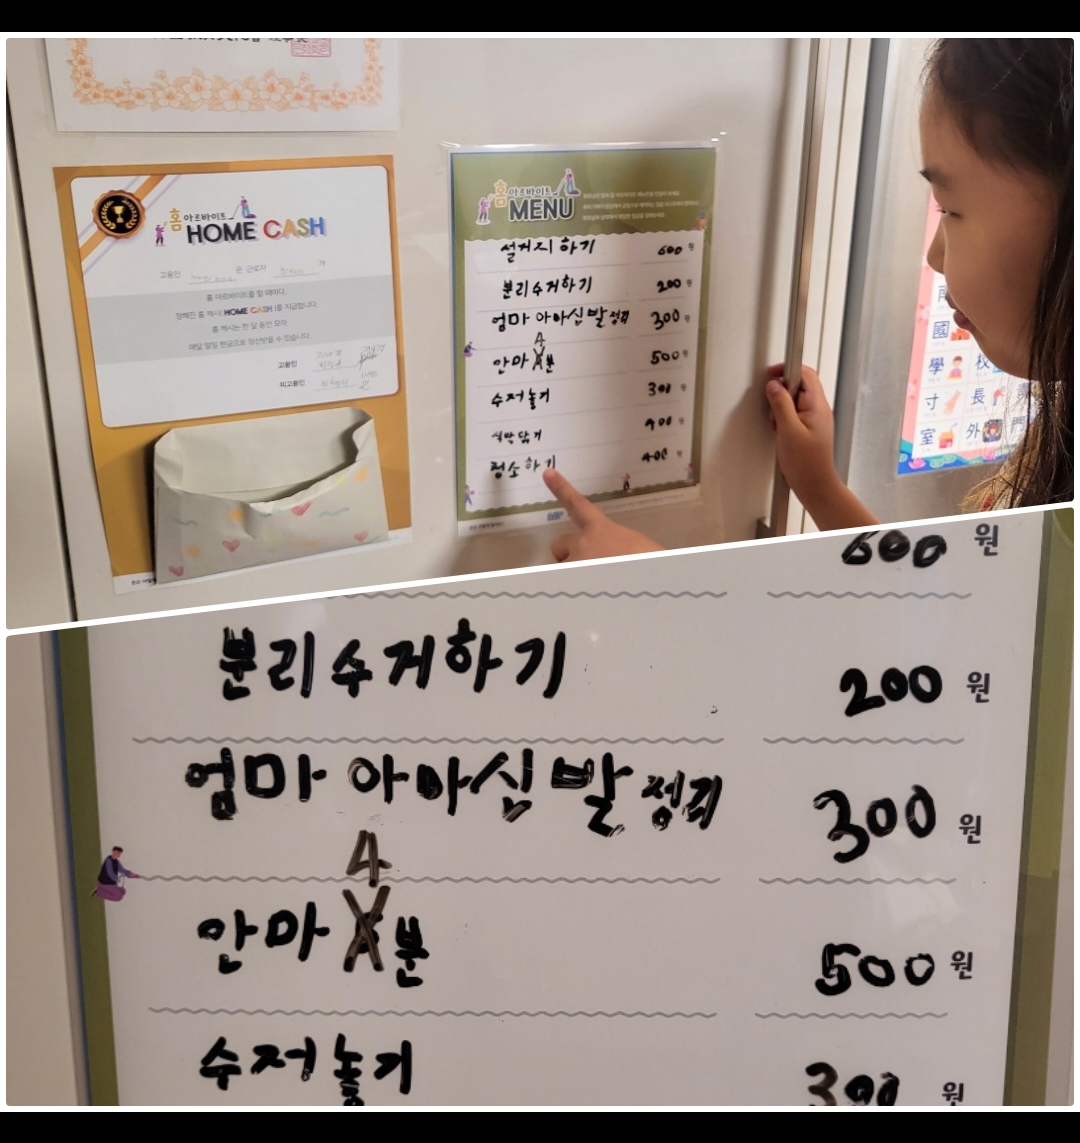 홈 아르바이트
HOME CASH
고용인 은 근로자 게
홈 아르바이트를 할 때마다,
정해진 홈 캐시( HOME CASH )를 지급합니다.
홈 캐시는 한 달 동안 모아
매달 말일 현금으로 정산받을 수 있습니다.
고용인
피고용인
홈 아르바이트
MENU
설거지 하기 600 원
분리수거하기 200 원
엄마 아마십발 정리 300 원
4
안마 분 500 원
수저놓기 300 원
식탁닦기 400 원
청소하기 400 원
國
學 校
寸 長
室 外 門
600 원
분리수거하기 200 원
엄마 아마십발 정리 300 원
4
안마 분 500 원
수저놓기 300 원